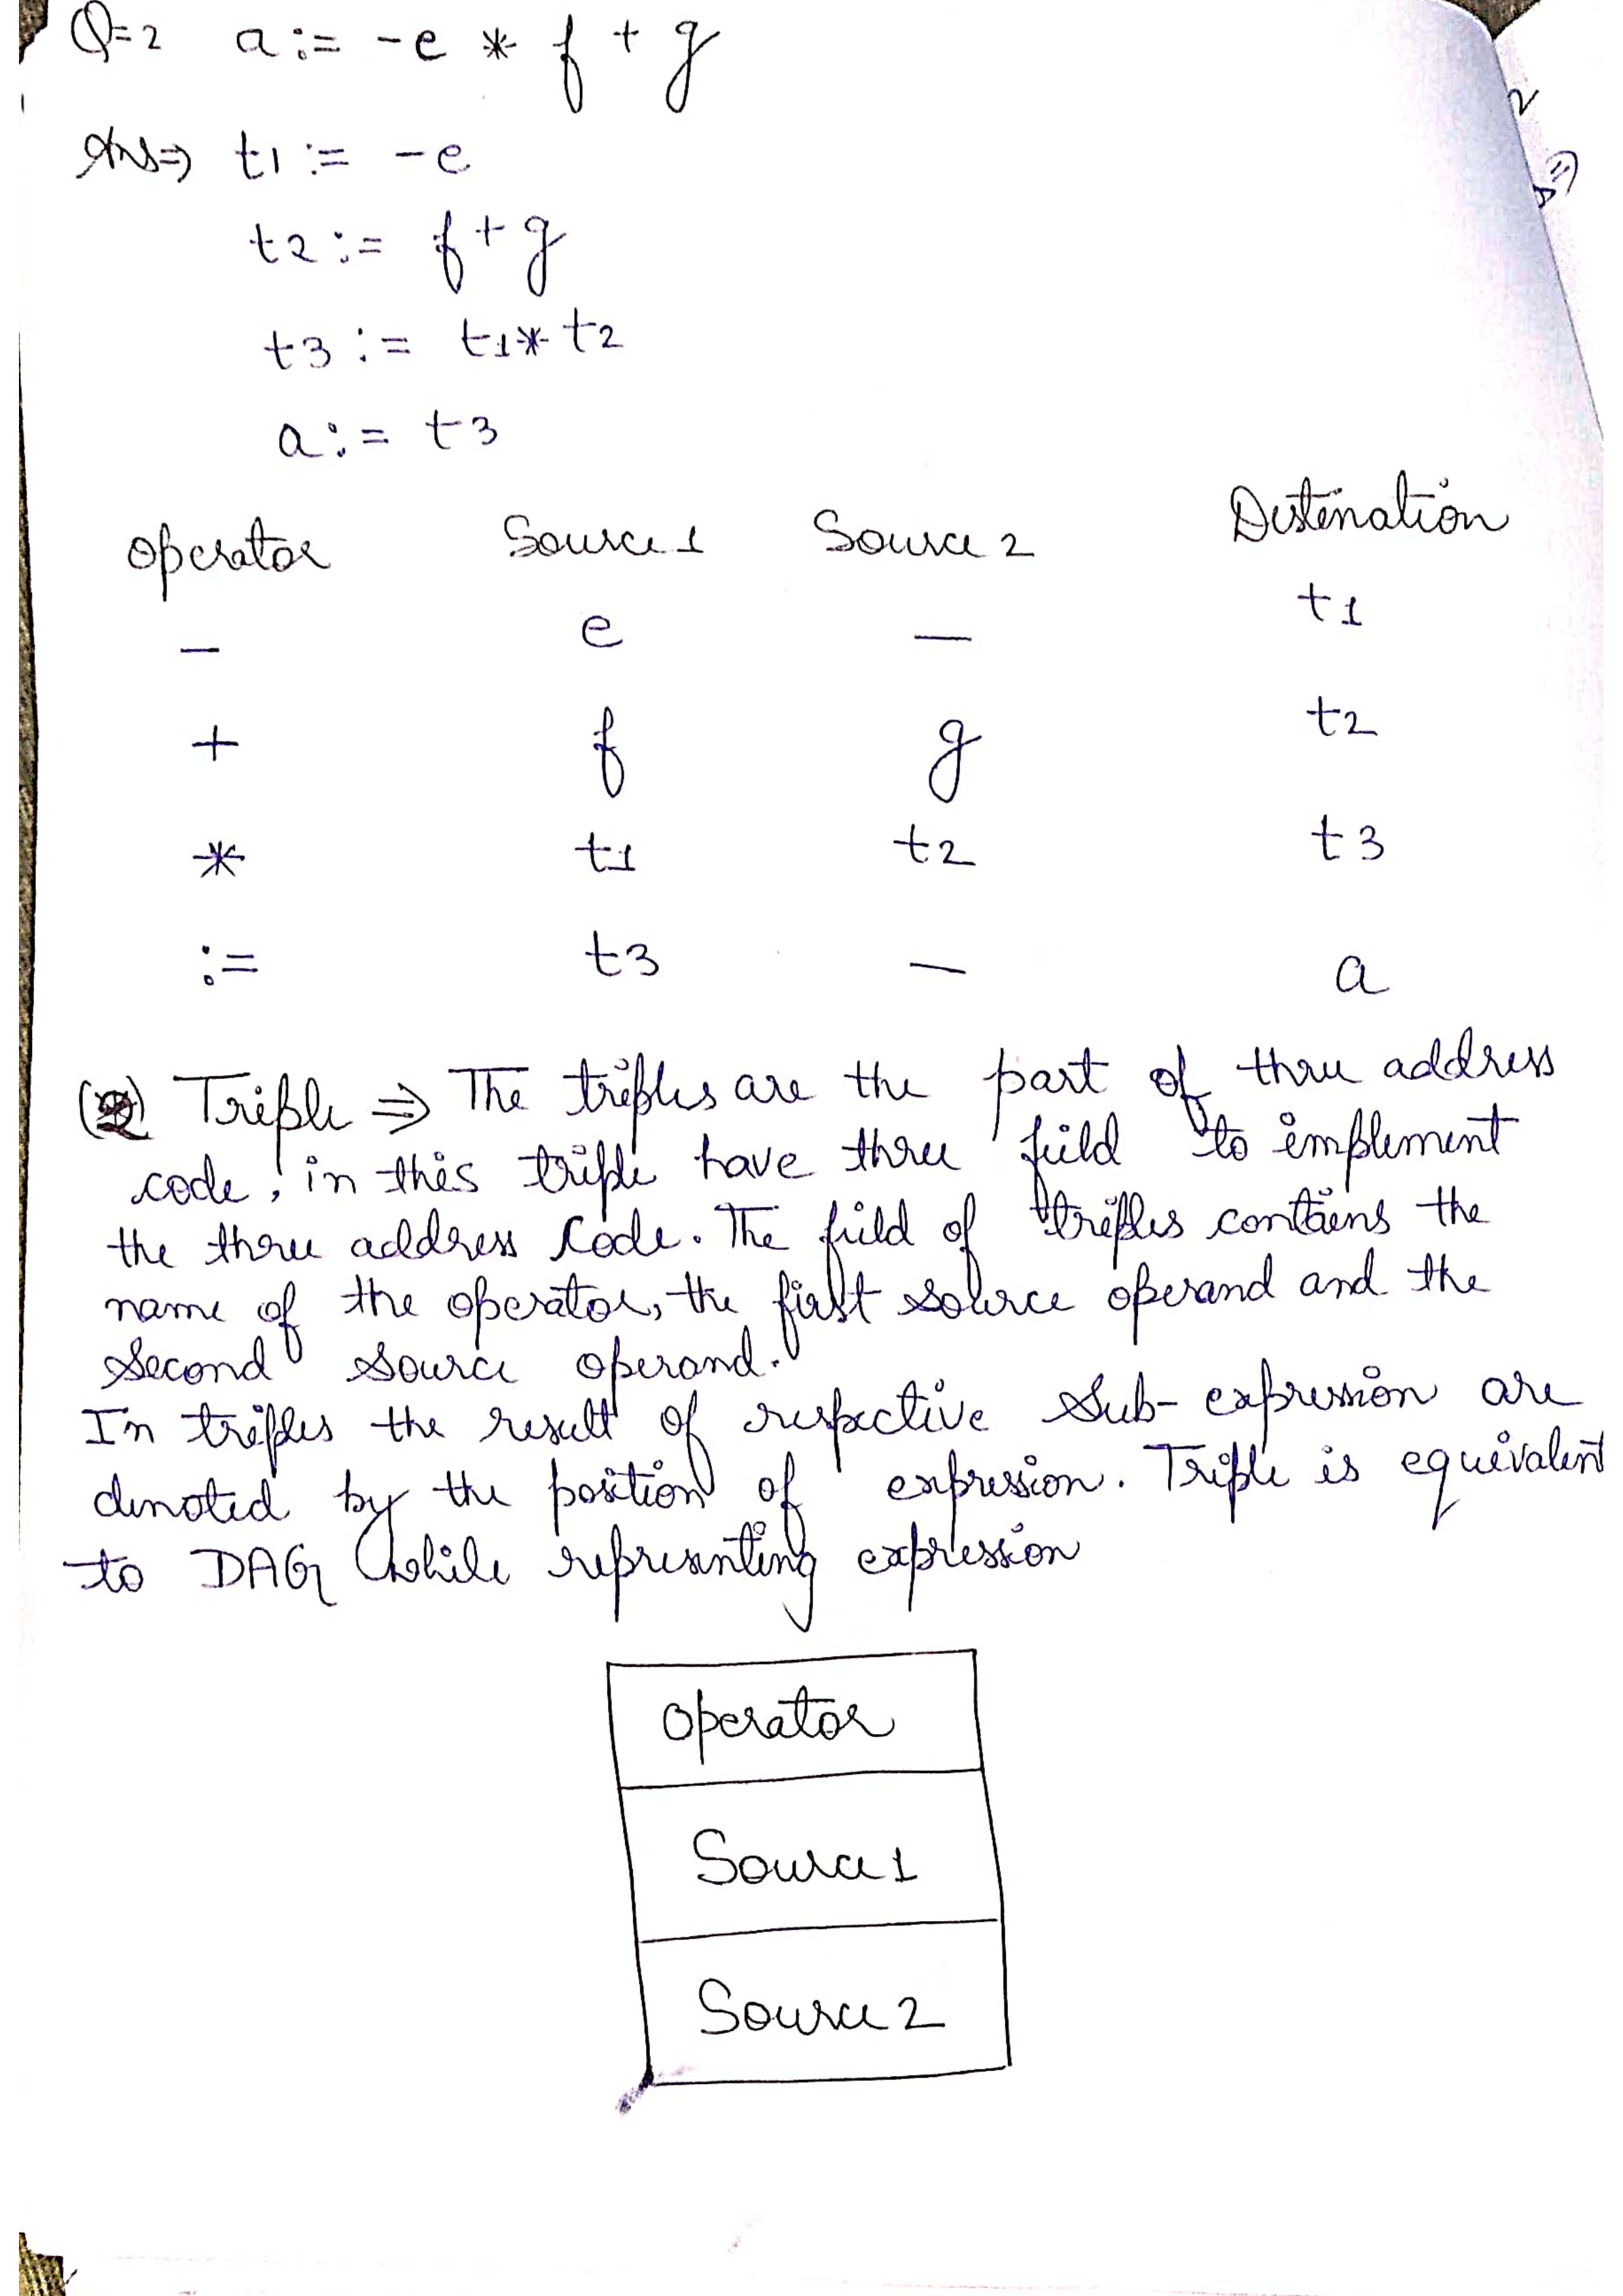 Q=2 a := -e * f + g
Ans⇒ t1 := -e
t2 := f + g
t3 := t1 * t2
a := t3
operator Source 1 Source 2 Distination
− e — t1
+ f g t2
* t1 t2 t3
:= t3 — a
(2) Triple ⇒ The triples are the part of three address
code, in this triple have three field to implement
the three address code. The field of triples contains the
name of the operator, the first source operand and the
second source operand.
In triples the result of respective Sub-expression are
denoted by the position of expression. Triple is equivalent
to DAG while representing expression
operator
Source 1
Source 2